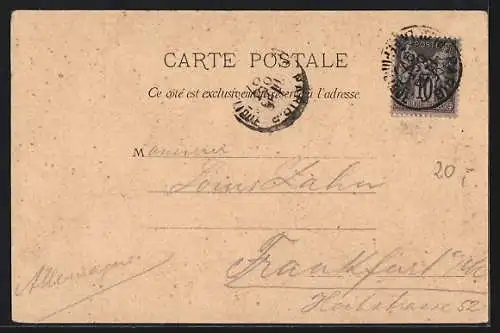 CARTE POSTALE
Ce côté est exclusivement réservé à l'adresse
POSTE
10
Monsieur
Louis Zahn
20,
Allemagne
Frankfurt a/M
52